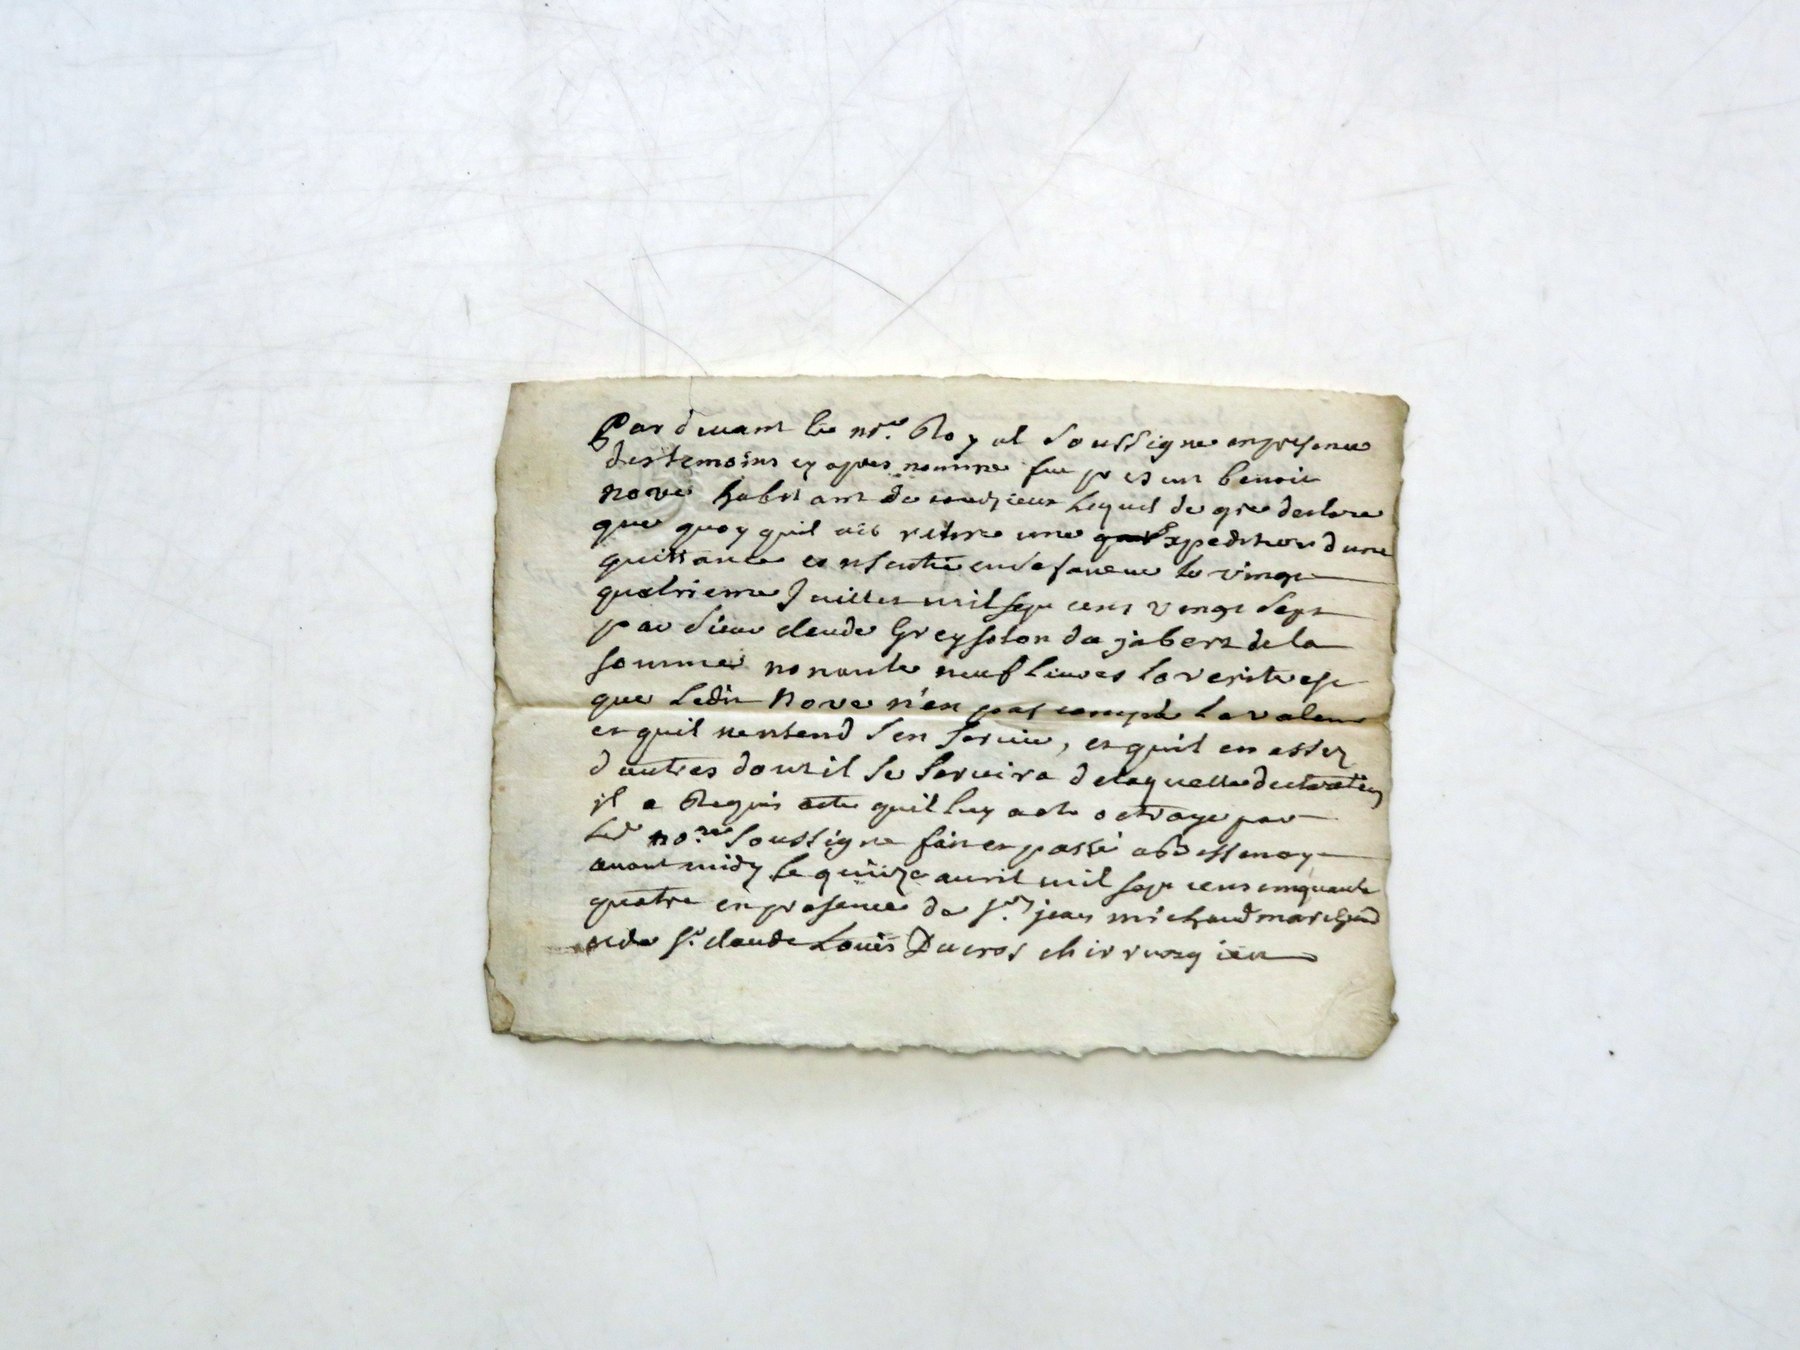 Par devant le nre. Royal soussigne en presence
des temoins cy apres nomme fut present benoit
nove habitant de lequel de gre declare
que quoy quil ait retire une expedition dune
quittance consentie en sa faveur le vingt
quatrieme Juillet mil sept cent vingt sept
par sieur claude Greysolon de jabert de la
somme nonante neuf livres la verite est
que ledit Nove n'en pas compte la valeur
et quil nentend sen servir, et quil en assez
dautres dont il se servira de laquelle declaration
il a Requis acte quil luy a ete octroye par
led nore soussigne fait et passé a
avant midy le quinze avril mil sept cent cinquante
quatre en presence de sr. jean michaud marchand
et de sr. claude Louis Ducros chirrurgien